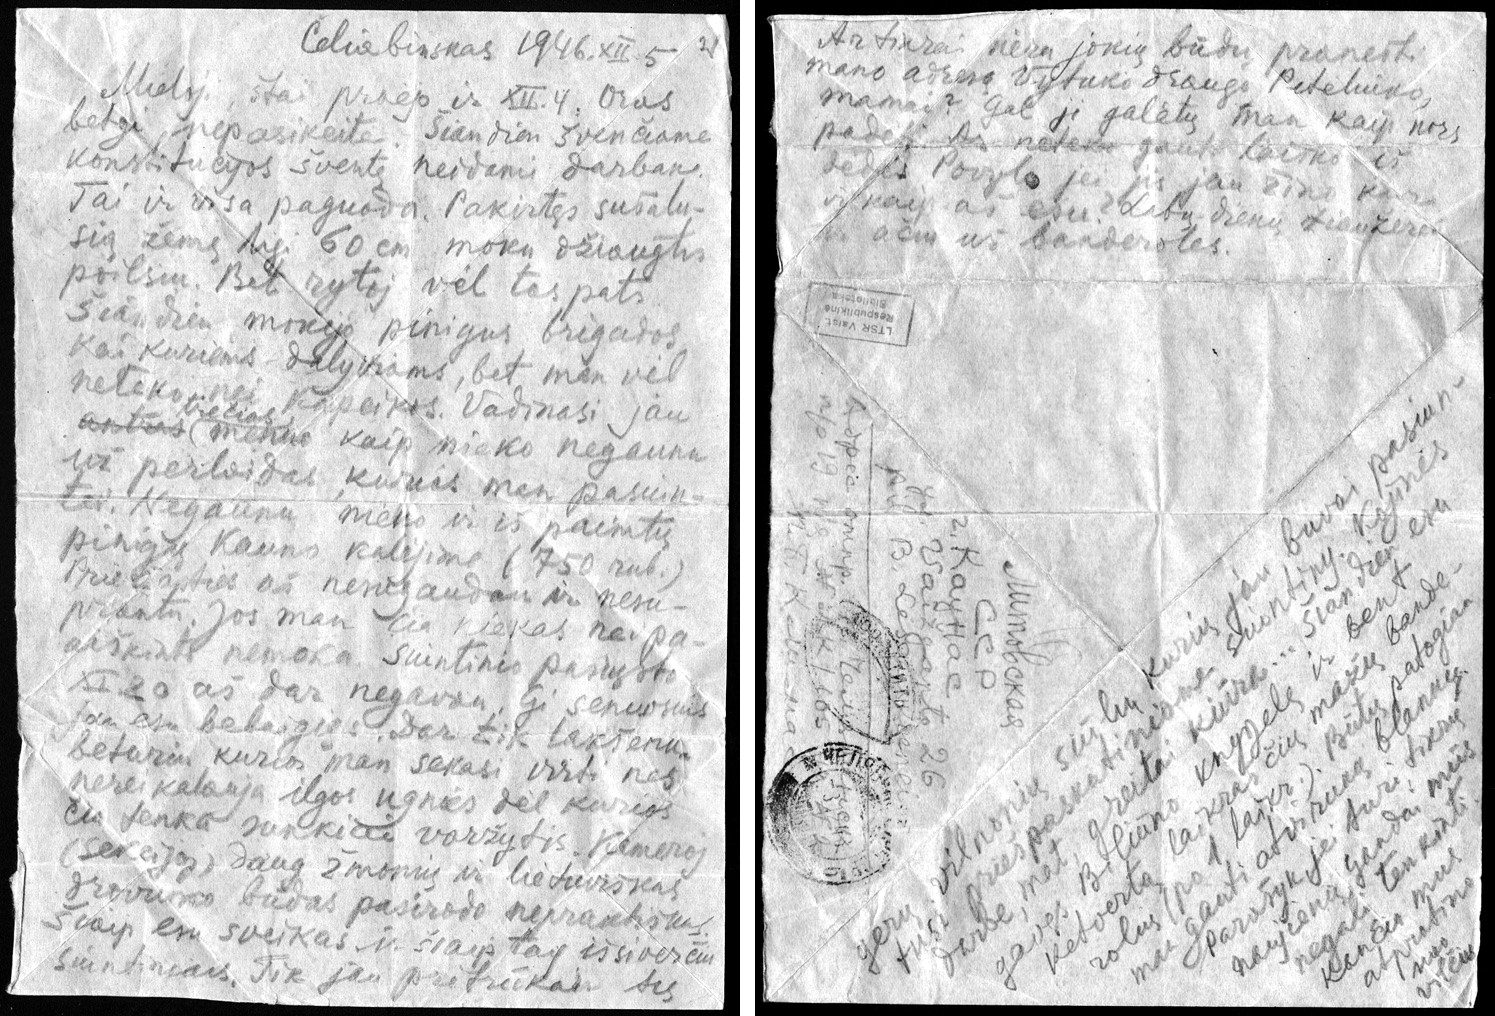 Celiabinskas 1946.XII.5
Mieloji, štai praėjo ir XII.4. Oras
betgi nepasikeitė. Šiandien švenčiame
konstitucijos šventę neidami darban.
Tai ir visa paguoda. Pakirtęs sušalu-
sią žemę ligi 60 cm moku džiaugtis
poilsiu. Bet rytoj vėl tas pats
Šiandien mokėjo pinigus brigados
kai kuriems dalyviams, bet man vėl
neteko nei kapeikos. Vadinasi jau
trečias
antras mėnuo kaip nieko negaunu
už perlaidas kurias man pasiun-
tei. Negaunu nieko ir iš paimtų
pinigų Kauno kalėjime (750 rub.)
Priežasties aš nesigaudau ir nesu-
prantu. Jos man čia niekas nei pa-
aiškinti nemoka. Siuntinio pasiųsto
XI 20 aš dar negavau. Gi senuosius
jau esu bebaigiąs. Dar tik lakštenų
beturiu kurios man sekasi virti nes
nereikalauja ilgos ugnies dėl kurios
čia tenka sunkiai varžytis. Kameroj
(sekcijoj) daug žmonių ir lietuviškas
drovumo būdas pasirodo nepraktiškas.
Šiaip esu sveikas ir šiaip taip išsiverčiu
siuntiniais. Tik jau pritrūkau tų
Ar tikrai nėra jokių būdų pranešti
mano adresą Vytuko draugo Petelniko,
mamai? Gal ji galėtų man kaip nors
padėti. Ar neteko gauti laiško iš
dėdės Povylo jei jis jau žino kur
ir kaip aš esu? Labų dienų
ir ačiū už banderoles.
LTSR Valst.
Respublikinė
Biblioteka
Литовская
ССР
г. Каунас
ул. Вайжганто 26
gerų vilnonių siūlų kurių jau buvai pasiun-
tusi priešpaskutiniame siuntiny. Kojinės
darbe, mat, greitai kiūra... Šiandien esu
gavęs Biliūno knygelę ir bent
ketvertą laikraščių mažų bande-
rolių (po 1 laikr.) Būtų patogiau
man gauti atvirukų blankų.
parašyk jei turi, tikrų
naujienų gandai mūs
negali tenkinti.
Kančia mus
atpratino
nuo
vilčių